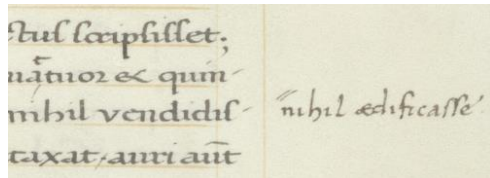 ctus scripsisset;
uatuor ex quin-
nihil vendidis-
taxat, auri aut̄
nihil ædificasse